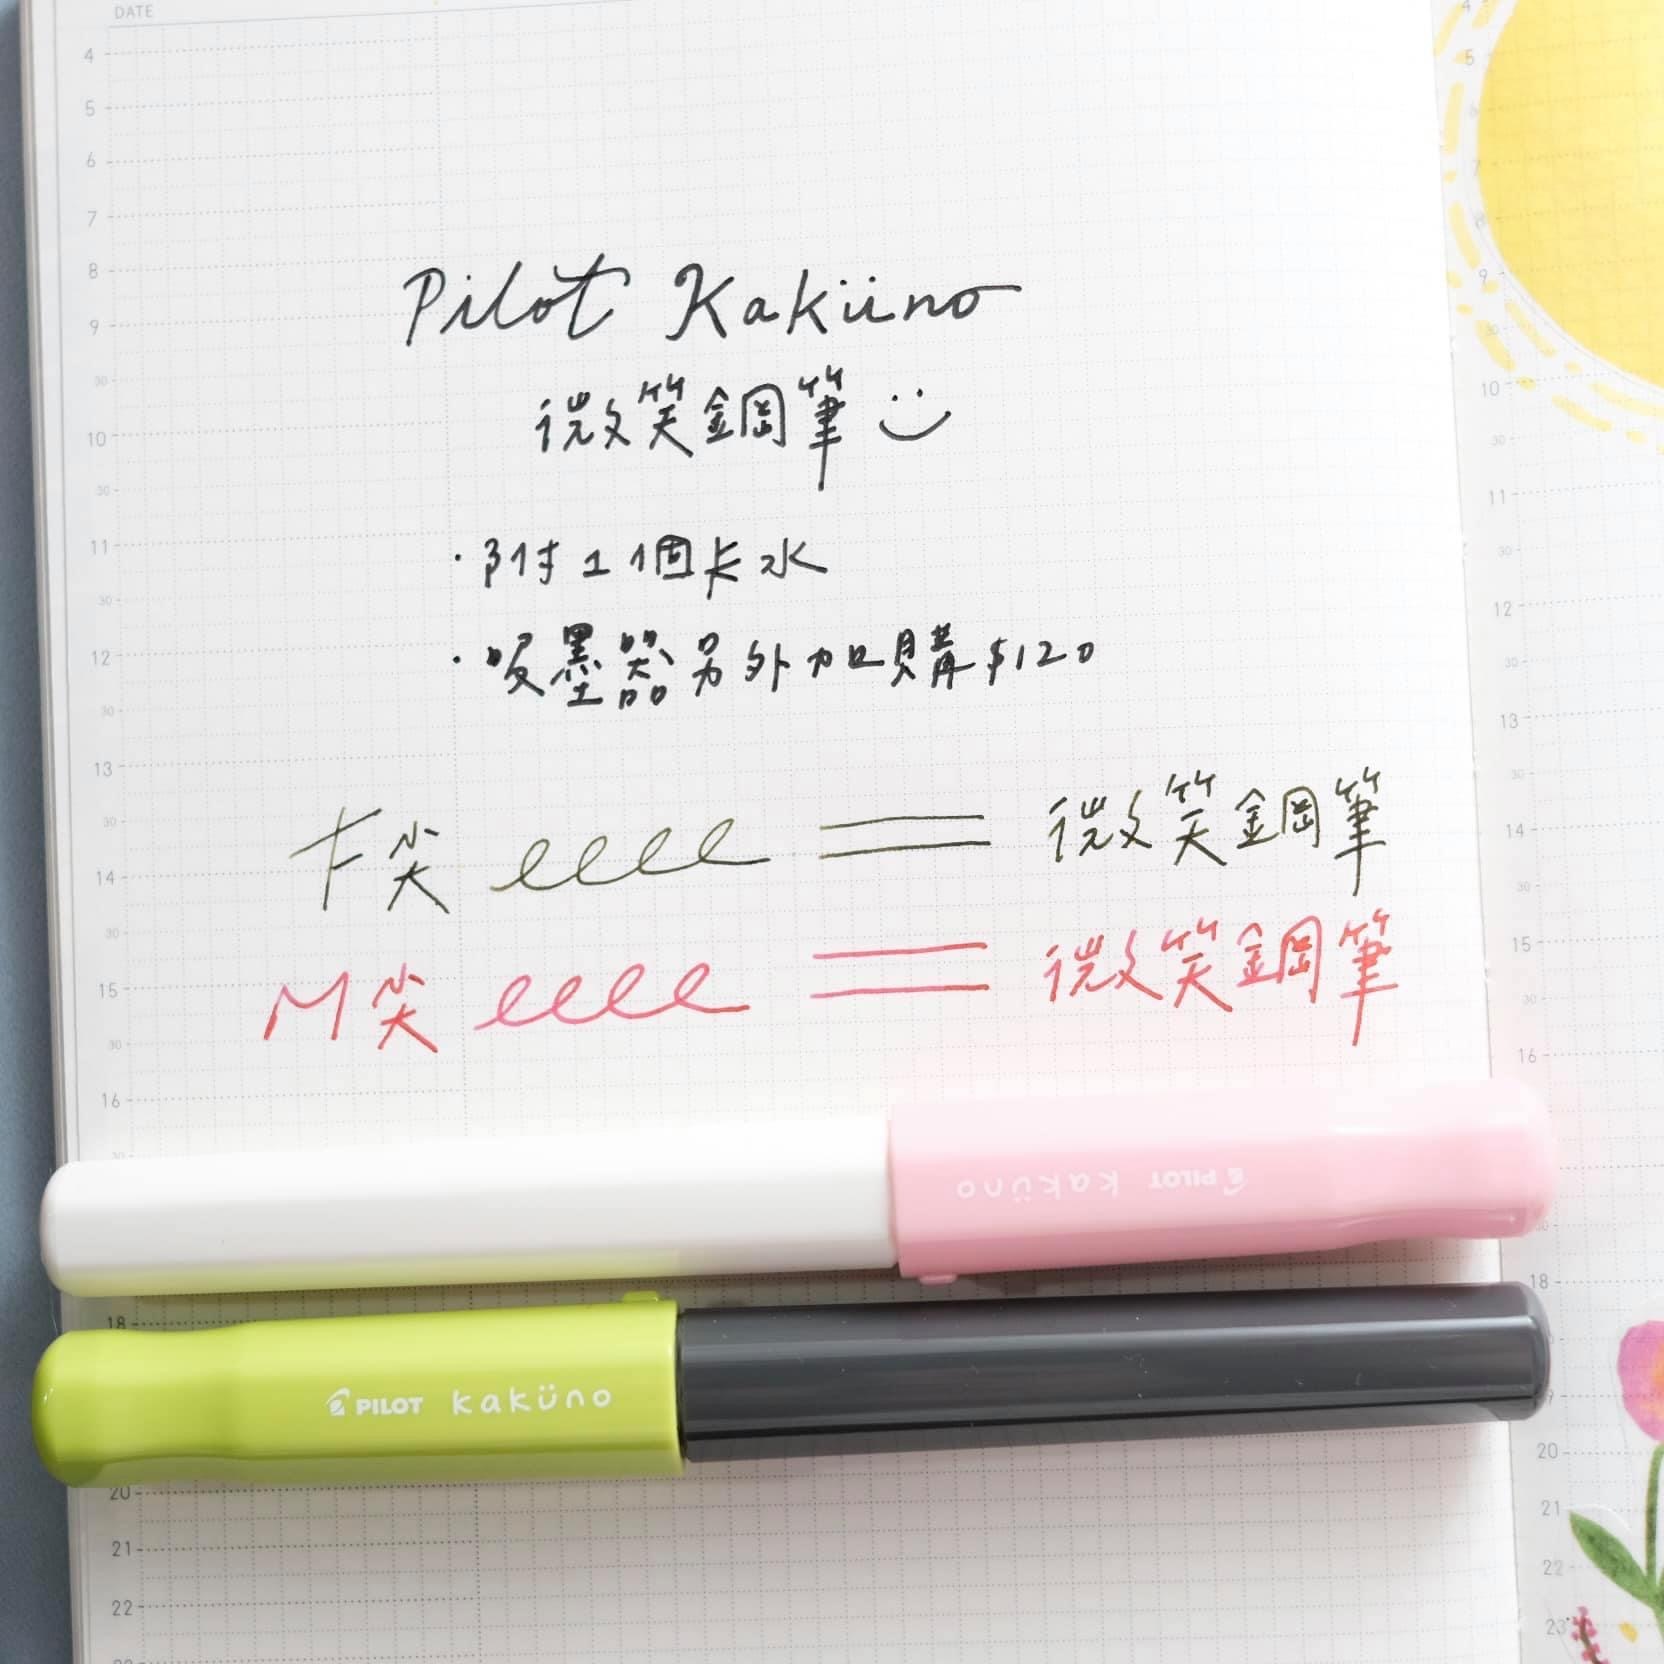 DATE
4
5
6
7
8
9
30
10
30
11
30
12
30
13
30
14
30
15
30
16
30
18
20
21
22
Pilot Kaküno
微笑鋼筆
・附1個卡水
・吸墨器另外加購$120
F尖 eeee 微笑鋼筆
M尖 eeee 微笑鋼筆
PILOT kaküno
PILOT kaküno
4
5
6
7
8
9
30
10
30
11
30
12
30
13
30
14
30
15
30
16
18
20
21
22
23